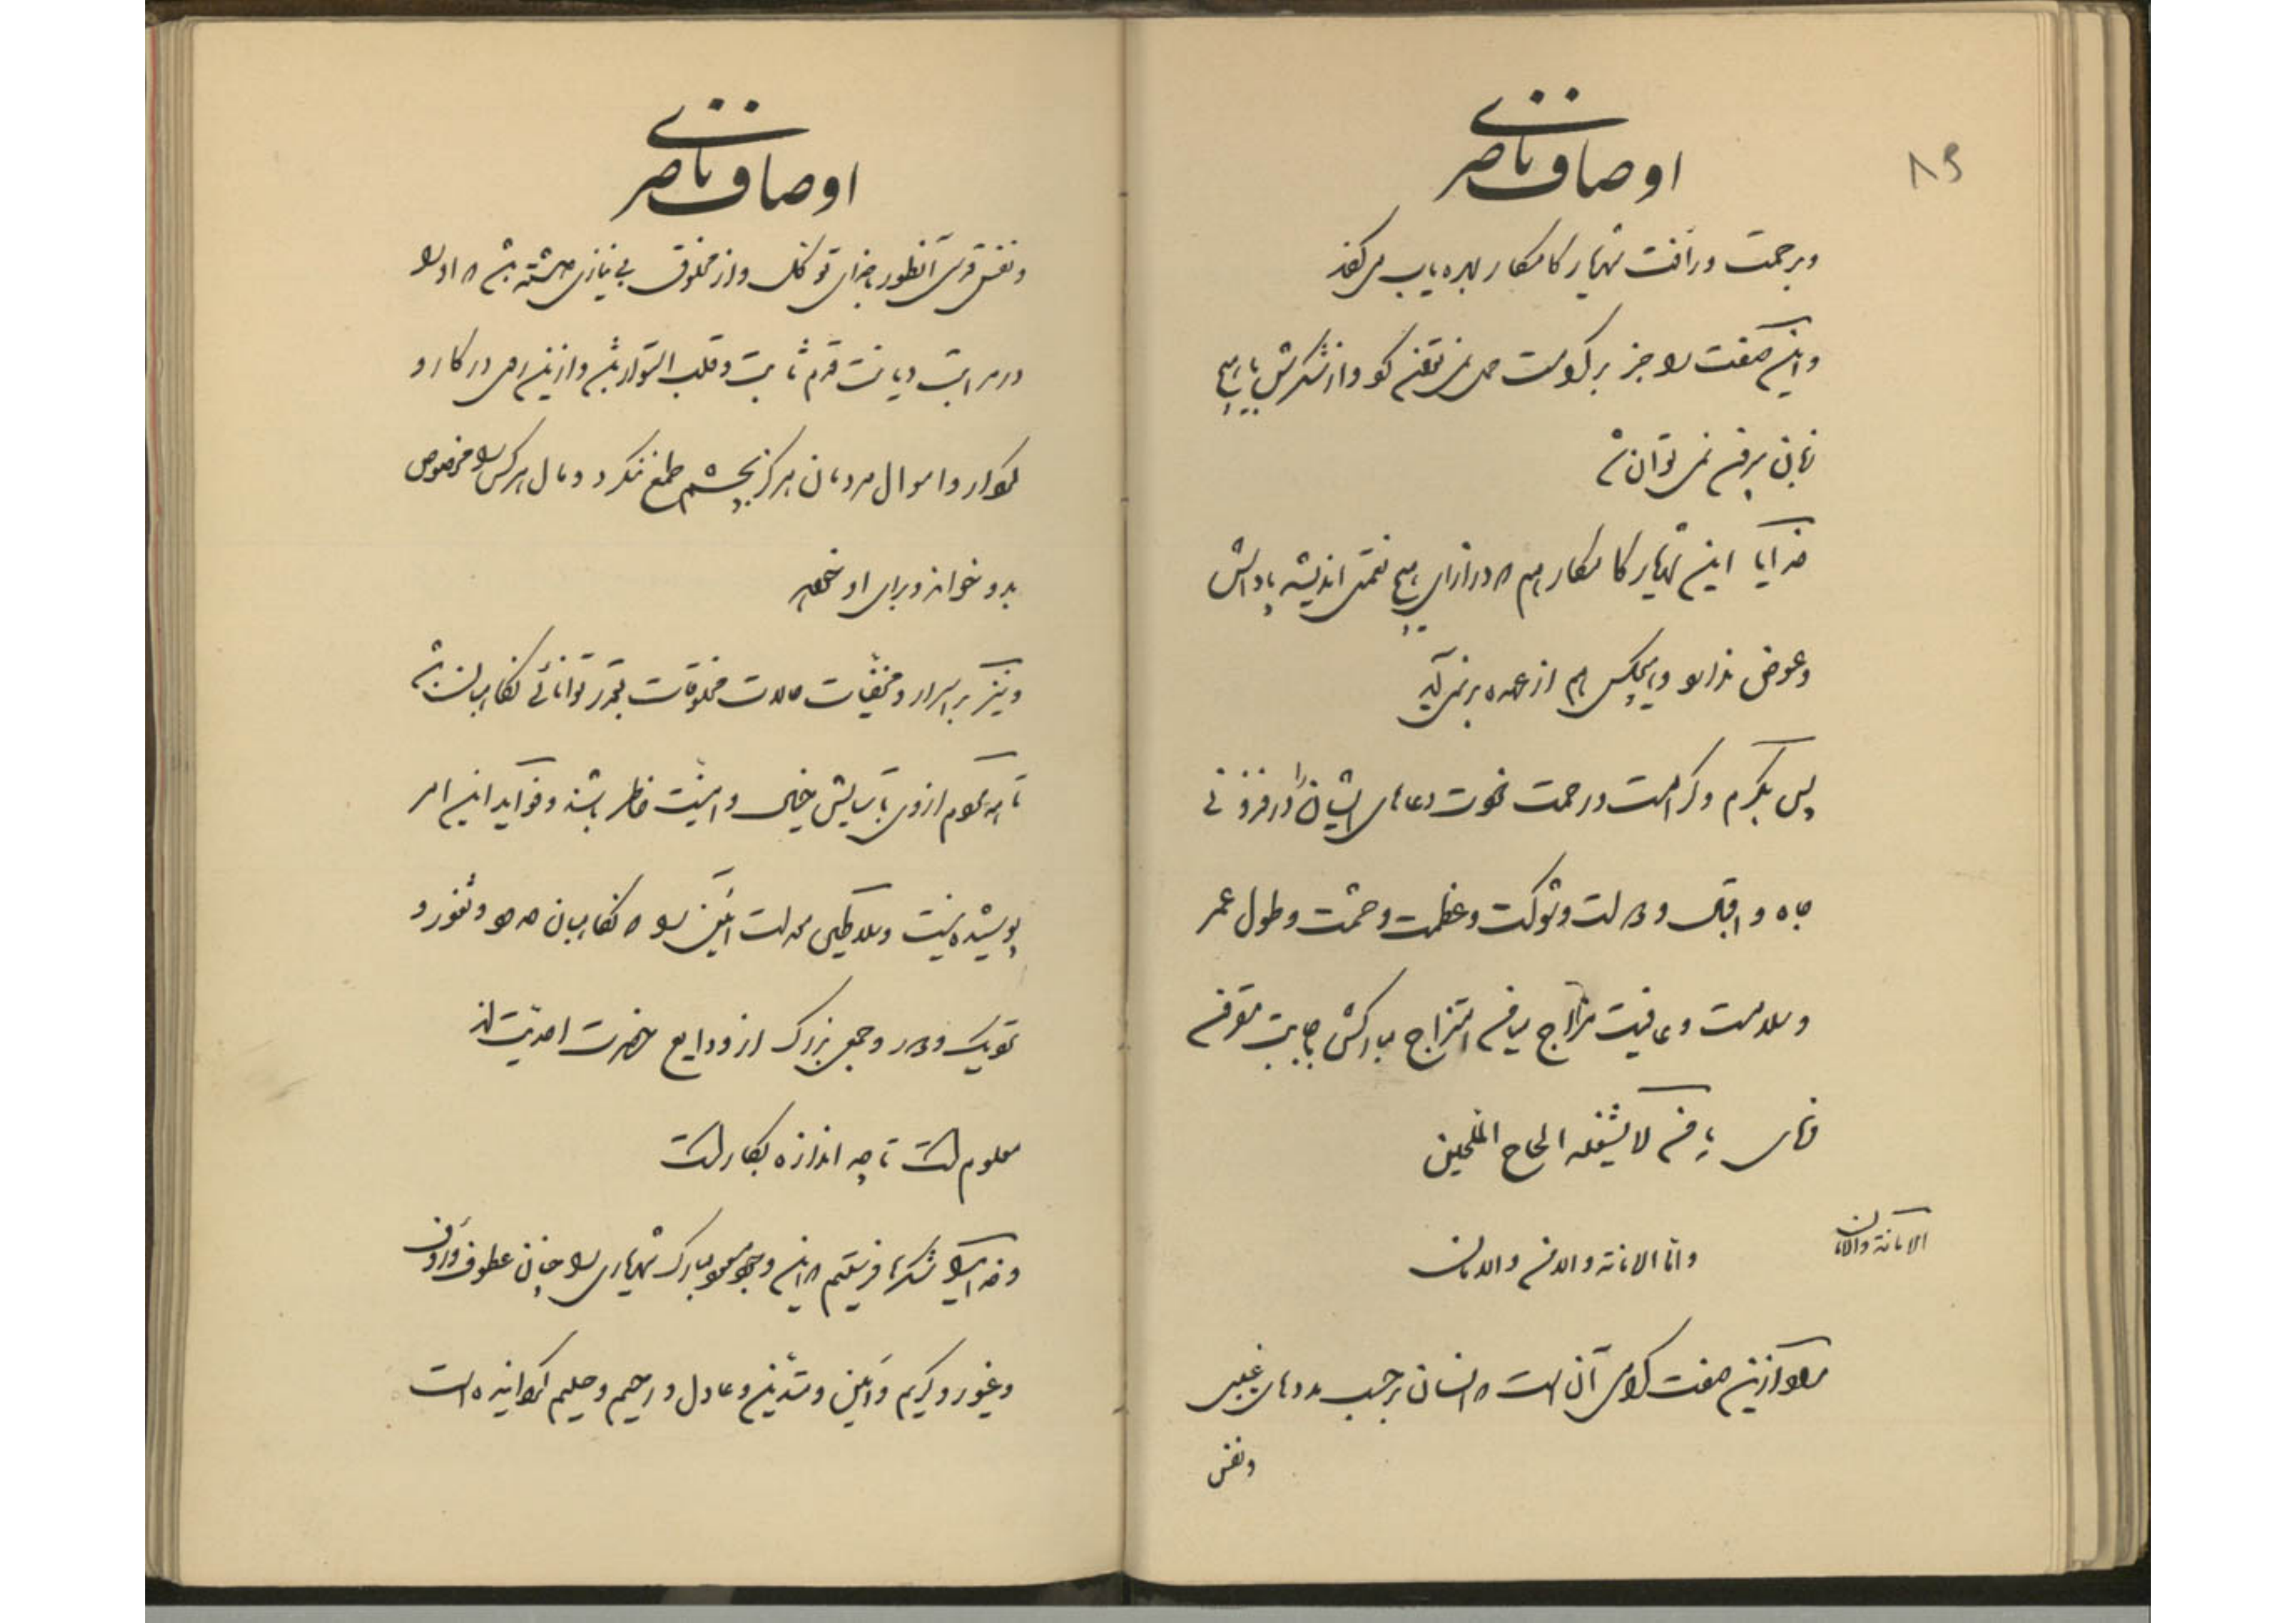 اوصاف ناصری
۸۹
وبرحمت ورأفت شهریار کامکار بهره‌یاب می‌کند
واین صفت را جز بر کرامت حمل نمی‌توان کرد واز شکرش بهیچ
زبان بیرون نمی‌توان شد
خدایا این شهریار کامکار هم که در ازای هیچ نعمتی اندیشه پاداش
وعوض ندارد وهیچکس هم از عهده برنمی‌آید
پس بکرم وکرامت ورحمت خودت دعای ایشان را در فزونی
جاه واقبال ودولت وشوکت وعظمت وحشمت وطول عمر
وسلامت وعافیت مزاج امتزاج مبارکش باجابت مقرون
فرمای یا من لا یشغله الحاح الملحین
واما الامانة والامن والامان
الامانة والامان
مراد ازین صفت گرامی آن است که انسان برحسب مددهای غیبی
ونفس
اوصاف ناصری
ونفس قدسی آنطور بخدای توکل واز مخلوق بی‌نیازی داشته باشد که او را
در مراتب دیانت قدم ثابت وقلب استوار باشد وازین روی در کار و
کردار واموال مردمان هرگز بچشم طمع ننگرد ومال هرکس را مخصوص
بدو خواند وبرای او خواهد
ونیز بر اسرار ومخفیات حالات مخلوقات بقدر توانائی نگاهبان باشد
تا همه کس از وی بآسایش خیال وامنیت خاطر باشند وفواید این امر
پوشیده نیست وسلاطین عدالت آئین را که نگاهبان حدود وثغور و
وجمعی بزرگ از ودایع حضرت احدیت‌اند
معلوم است تا چه اندازه بکار است
وخدای را شکرها فرستیم که این وجود مبارک شهریاری را چنان عطوف ورؤف
وغیور وکریم وامین ومتدین وعادل ورحیم وحلیم گردانیده است